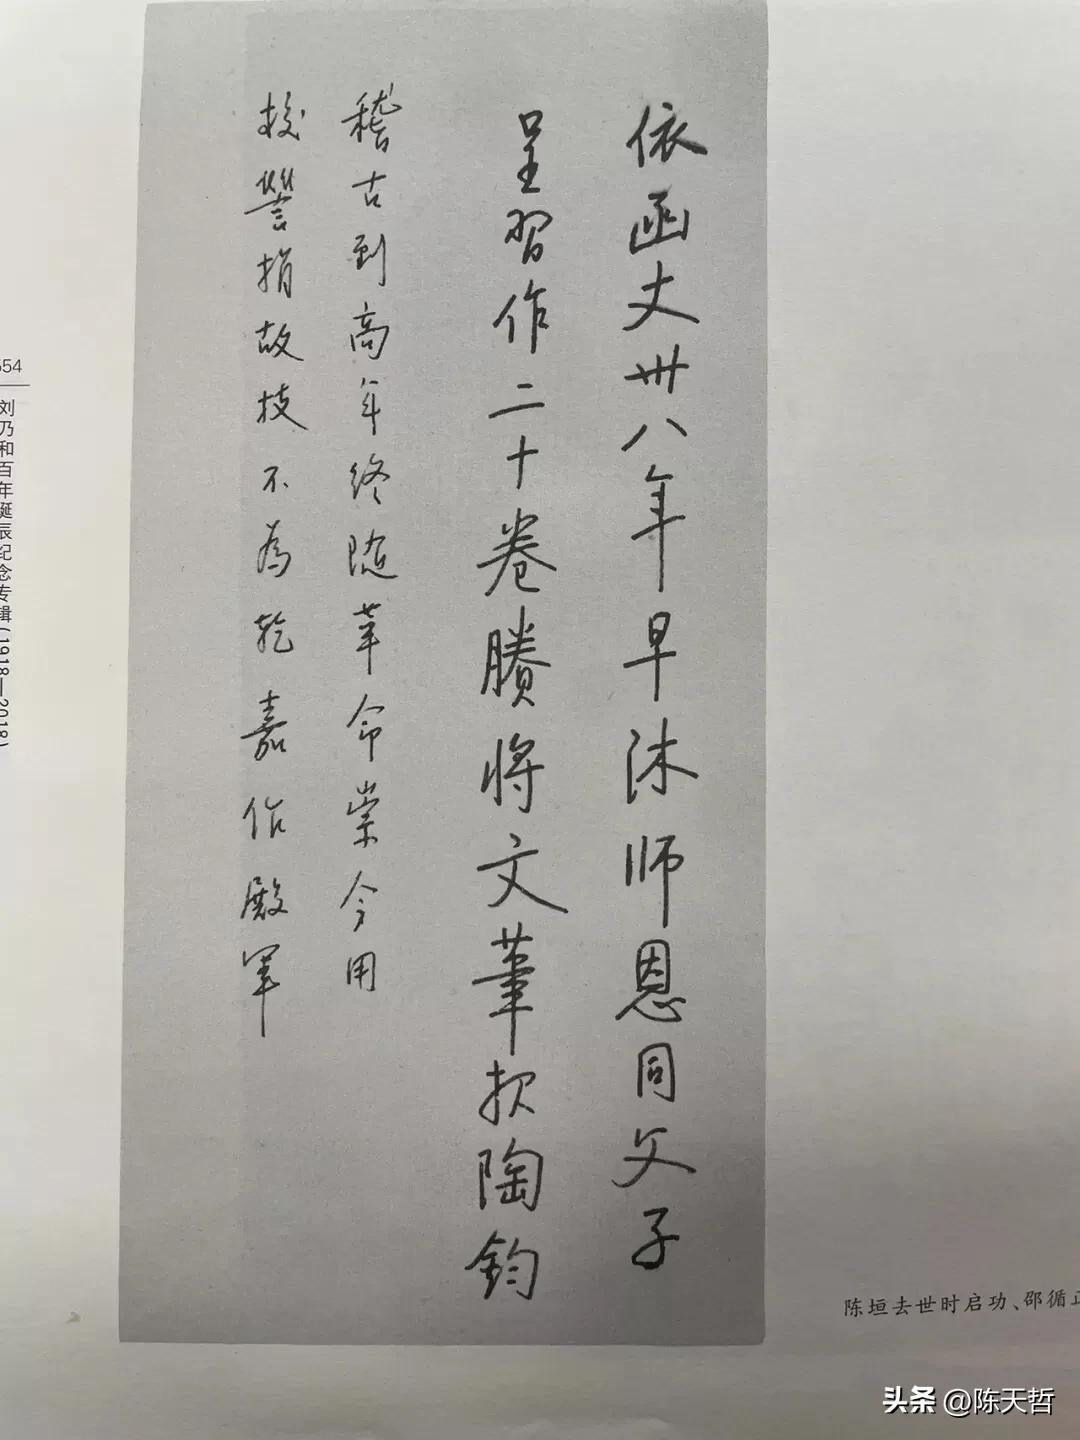 依函丈卅八年早沐师恩同父子
呈習作二十卷賸将文筆报陶鈞
稽古到高年终随革命崇今用
校讐捐故技不為乾嘉作殿軍
刘乃和百年诞辰纪念专辑(1918—2018)
陈垣去世时启功、邵循正
头条 @陈天哲